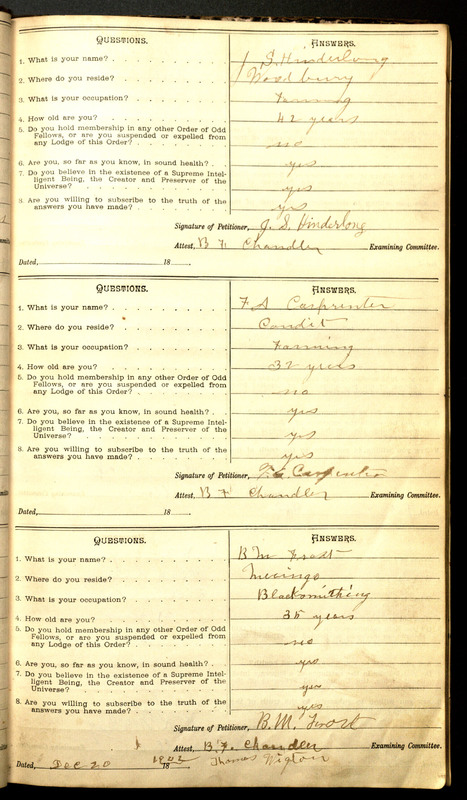 QUESTIONS. ANSWERS.
1. What is your name? J. Hinderlong
2. Where do you reside? Woodbury
3. What is your occupation? Farming
4. How old are you? 42 years
5. Do you hold membership in any other Order of Odd
Fellows, or are you suspended or expelled from
any Lodge of this Order? no
6. Are you, so far as you know, in sound health? yes
7. Do you believe in the existence of a Supreme Intel-
ligent Being, the Creator and Preserver of the
Universe? yes
8. Are you willing to subscribe to the truth of the
answers you have made? yes
Signature of Petitioner, J. S. Hinderlong
Attest, B F Chandler Examining Committee.
Dated, 18
QUESTIONS. ANSWERS.
1. What is your name? F A Carprenter
2. Where do you reside? Condit
3. What is your occupation? Farming
4. How old are you? 32 years
5. Do you hold membership in any other Order of Odd
Fellows, or are you suspended or expelled from
any Lodge of this Order? no
6. Are you, so far as you know, in sound health? yes
7. Do you believe in the existence of a Supreme Intel-
ligent Being, the Creator and Preserver of the
Universe? yes
8. Are you willing to subscribe to the truth of the
answers you have made? yes
Signature of Petitioner, Carpenter
Attest, B F Chandler Examining Committee.
Dated, 18
QUESTIONS. ANSWERS.
1. What is your name? B M Frost
2. Where do you reside?
3. What is your occupation? Blacksmithing
4. How old are you? 35 years
5. Do you hold membership in any other Order of Odd
Fellows, or are you suspended or expelled from
any Lodge of this Order? no
6. Are you, so far as you know, in sound health? yes
7. Do you believe in the existence of a Supreme Intel-
ligent Being, the Creator and Preserver of the
Universe? yes
8. Are you willing to subscribe to the truth of the
answers you have made? yes
Signature of Petitioner, B. M. Frost
Attest, B. F. Chandler Examining Committee.
Dated, Dec 20 1902 18 Thomas Wigton